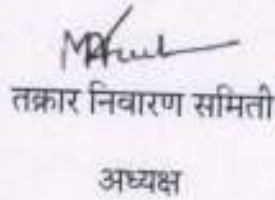 तक्रार निवारण समिती
अध्यक्ष